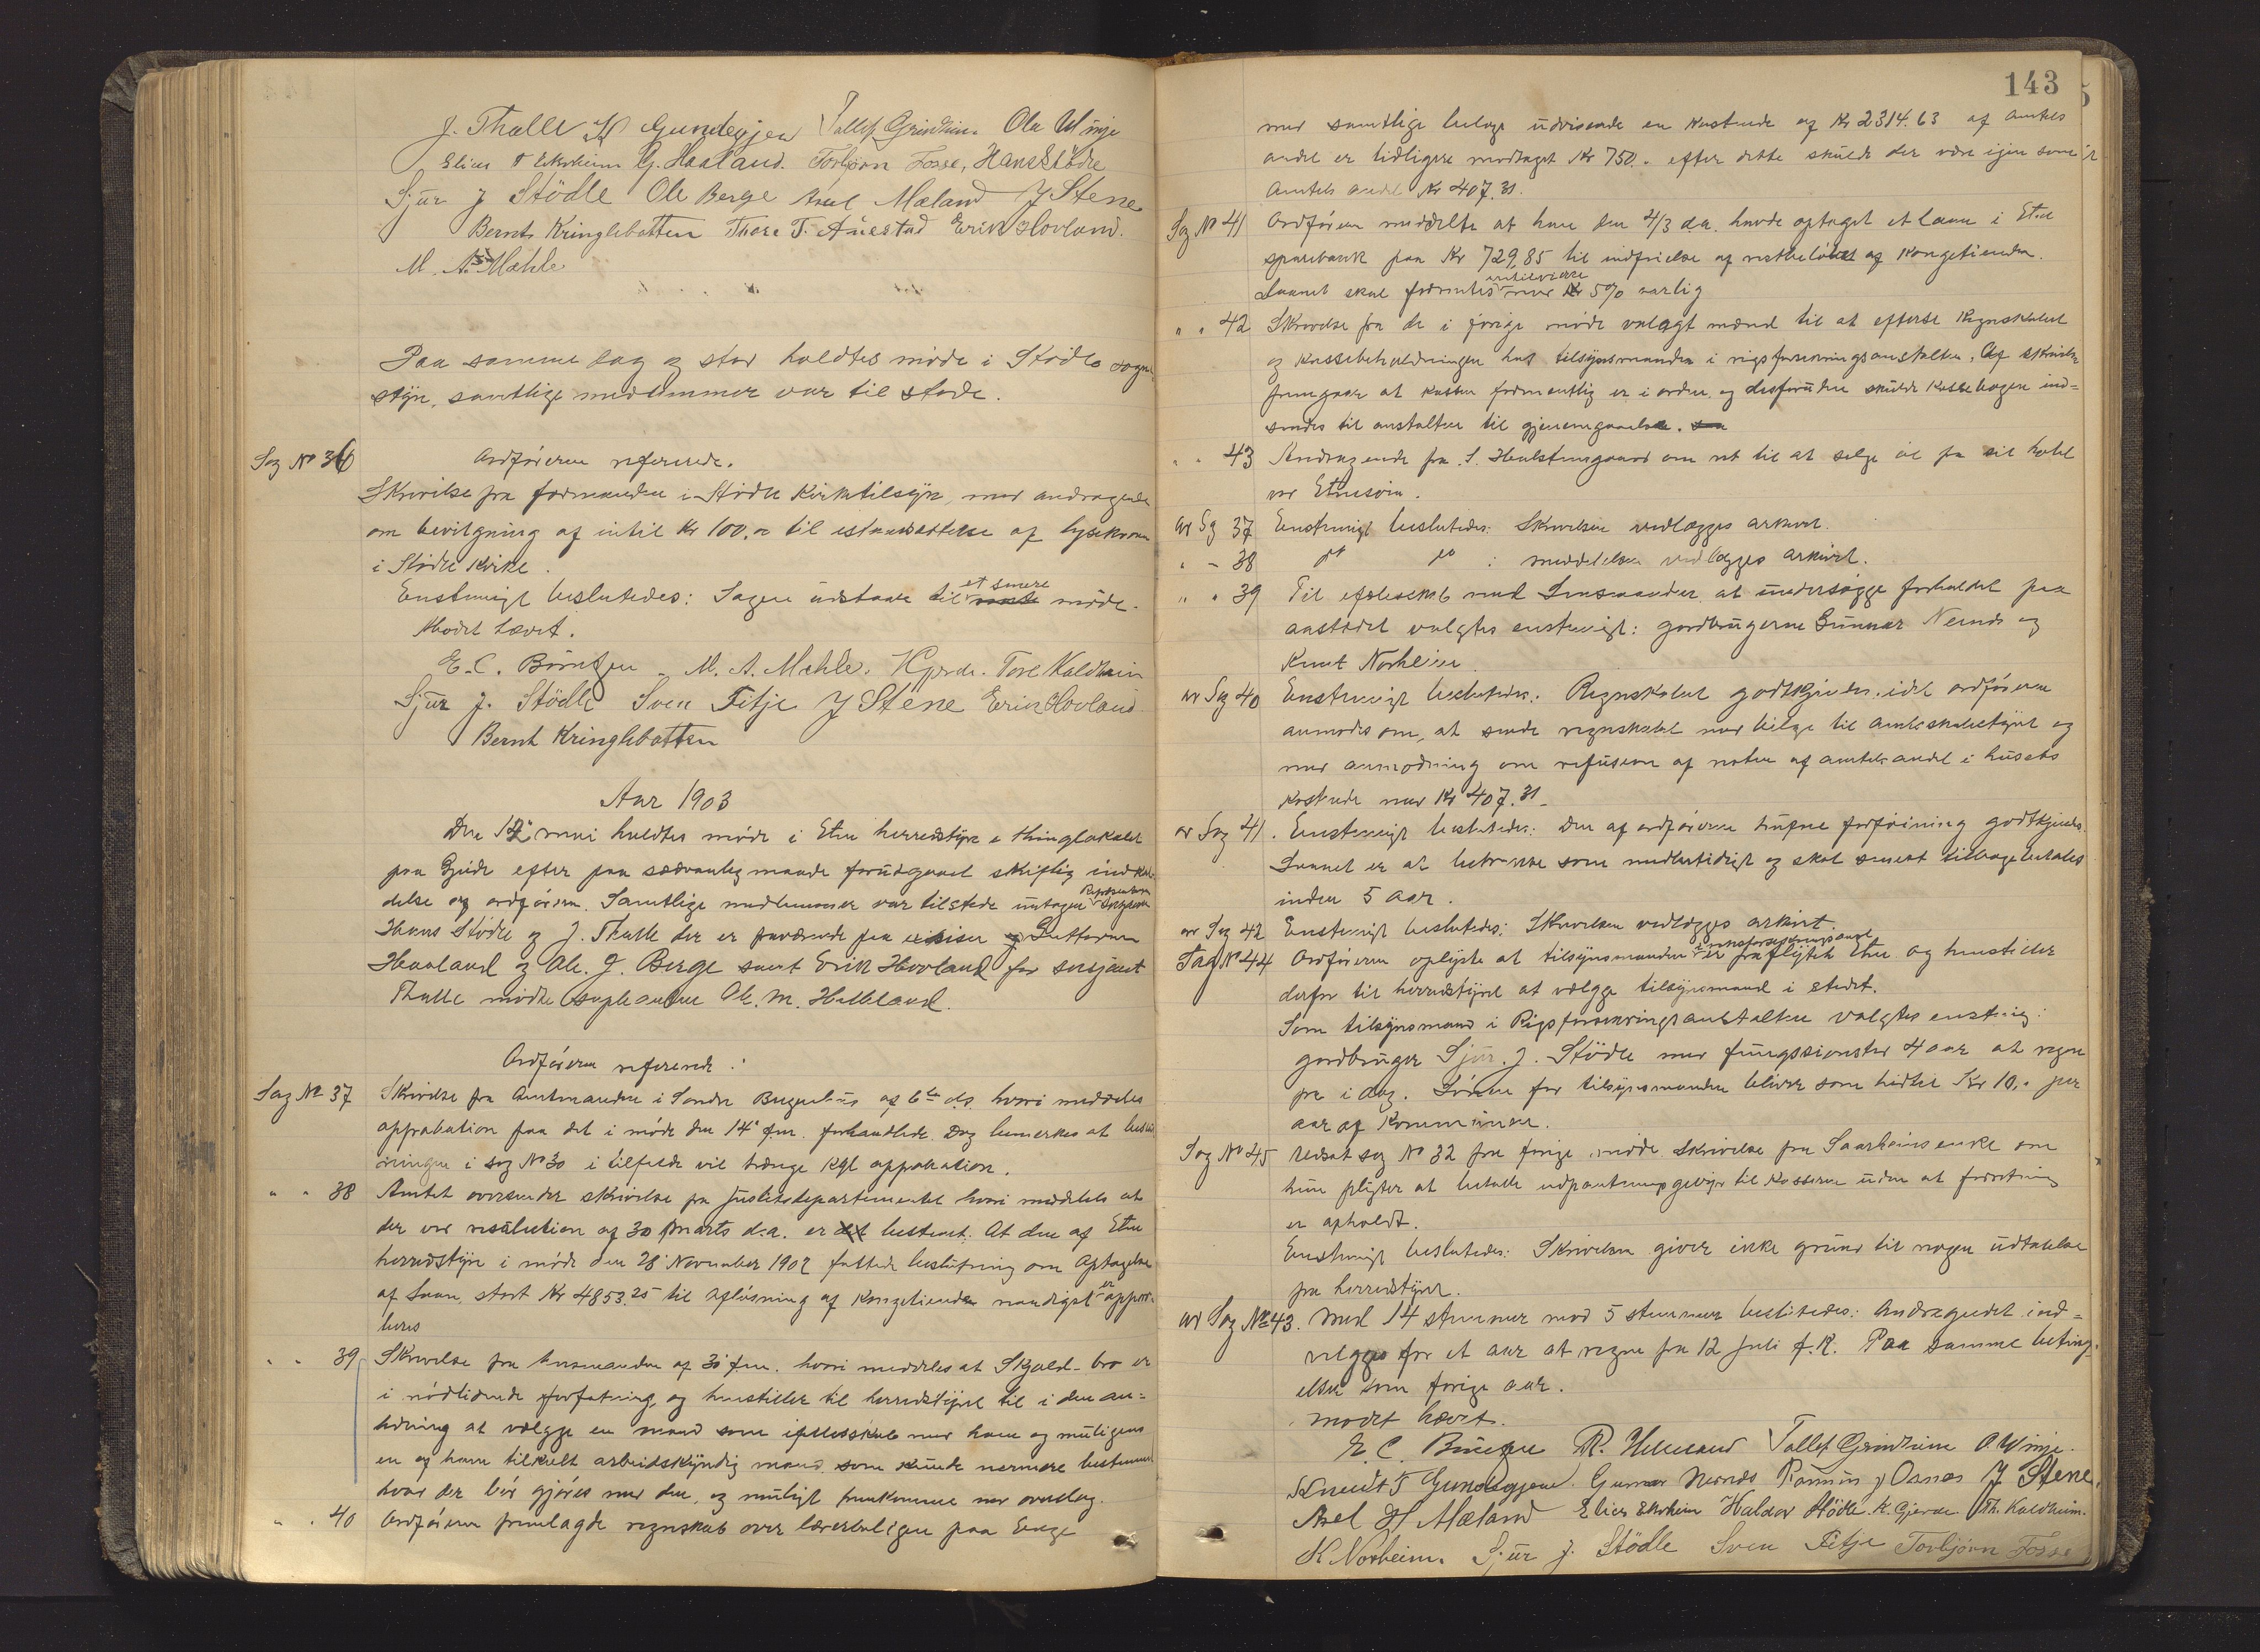 J. Thalle K Gundegjerd Tollef Grindheim Ola Winje
Elias T Ekrheim G. Haaland. Torbjørn Fosse, Hans Stödle
Sjur J Stödle Ole Berge Axel Mæland J Stene
Bernt Kringlebotten Thore T. Aarestad Erik Hovland.
M. A. Mæhle
Paa samme dag og stad holdtes møde i Stødle sogne
styre, samtlige medlemmer var til stede.
Sag No 36 Ordføreren refererede.
Skrivelse fra formanden i Stødle Kirketilsyn, med andragende
om bevilgning af intil Kr 100,00 til istandsættelse af lysekronen
i Stødle Kirke.
Enstemigt besluttedes: Sagen udstaar til et senere møde.
Mødet hævet.
E. C. Börretzen M. A. Mehle. K Gjerde. Tore Kaldheim
Sjur J. Stödle Sven Fitje J Stene Erik Hovland
Bernt Kringlebotten
Aar 1903
Den 12 mai holdtes møde i Etne herredstyre i thinglokalet
paa Gjerde efter paa sædvanlig maade forudgaaet skriftlig indkal-
delse af ordføreren. Samtlige medlemmer var tilstede untagen Repræsentan
Hans Stødle og J. Thalle der er fraværende paa reiser og Guttorm
Haaland og Ole. J. Berge samt Erik Hovland for sersjant
Thalle mødte supleanten Ole. M. Helleland.
Ordføreren refererede:
Sag No 37 Skrivelse fra Amtmanden i Søndre Bergenhus af 6te ds. hvori meddeles
approbation paa det i møde den 14' f.m. forhandlede. Dog bemerkes at beslut
ningen i sag No 30 i tilfælde vil trænge Kgl approbation.
" " 38 Amtet oversender skrivelse fra Justitsdepartementet hvori meddeles at
der ved resolution af 30 Marts d.a. er bestemt: At den af Etne
herredstyre i møde den 28' November 1902 fattede beslutning om Optagelse
af Laan, stort Kr 4853.25 til afløsning af Kongetienden naadigst er appro-
beres
" " 39 Skrivelse fra Lensmanden af 30' f.m. hvori meddeles at Skjold-bro er
i nødlidende forfatning, og henstiller til herredstyret til i den an-
ledning at vælge en mand som i fællesskab med ham og muligens
en af ham tilkaldt arbeidskyndig mand som kunde nærmere bestemme
hvad der bør gjøres med den, og muligt fremkomme med overslag.
" " 40 Ordføreren fremlagde regnskab over lærerboligen paa Enge
143
med samtlige bilage udvisende en kostende af Kr 2314.63 af amtets
andel er tidligere modtaget Kr 750.- efter dette skulde der være igjen som
Amtets andel Kr 407.31.
Sag No 41 Ordføreren meddelte at han den 4/3 d.a. havde optaget et laan i Etne
sparebank paa Kr 729,85 til indfrielse af restbeløbet af Kongetienden.
Laanet skal forrentes indtilvidere med 5% aarlig
" " 42 Skrivelse fra de i forige møde valgte mænd til at efterse Regnskabet
og kassebeholdningen hos tilsynsmanden i rigsforsikringsanstalten. Af skrivelsen
fremgaar at kassen formentlig er i orden og desforuden skulde kassebogen ind-
sendes til anstalten til gjennemgaaelse.
" " 43 Andragende fra S. Haalstensgaard om ret til at selge øl fra sit hotel
ved Etnesøen.
ad Sag 37 Enstemigt besluttedes: Skrivelsen vedlægges arkivet.
" - 38 do do : meddelelsen vedlægges Arkivet.
" " 39 Til i fællesskab med Lensmanden at undersøge forholdet paa
anstedet valgtes enstemigt: gardbrugerne Gunnar Nernes og
Knut Norheim.
ad Sag 40 Enstemigt besluttedes: Regnskabet godkjendes idet ordføreren
anmodes om, at sende regnskabet med bilage til Amtsskolestyret og
med anmodning om refusion af resten af amtets andel i husets
kostende med Kr 407.31.
ad Sag 41. Enstemigt besluttedes: Den af ordføreren trufne forføining godkjendes.
Laanet er at betragte som midlertidigt og skal senest tilbagebetales
inden 5 Aar.
ad Sag 42 Enstemigt besluttedes: Skrivelsen vedlægges arkivet.
Sag No 44 Ordføreren oplyste at tilsynsmanden i riksforsikringsanst er fraflyttet Etne og henstiller
derfor til herredstyret at vælge tilsynsmand i stedet.
Som tilsynsmand i Rigsforsikringsanstalten valgtes enstemig:
gardbruger Sjur. J. Stödle med fungssionstid 4 aar at regne
fra i dag. Lønnen for tilsynsmanden bliver som hidtil Kr 10.- per
aar af Kommunen.
Sag No 45 Udsat sag No 32 fra forige møde Skrivelse fra Saarheims enke om
hun pligter at betale udpantningsgebyr til Kassereren uden at forretning
er afholdt.
Enstemigt besluttedes: Skrivelsen giver ikke grund til nogen udtalelse
fra herredstyret.
ad Sag No 43. Med 14 stemmer mod 5 stemmer besluttedes: Andragendet ind-
vilges for et aar at regne fra 12 Juli f.k. Paa samme beting-
elser som forige aar.
Mødet hævet.
E. C. Börretzen R. Helleland Tollef Grindheim O Winje.
Knudt T Gundegjerd. Gunnar Nernes Rasmus J Osnes J Stene,
Axel H Mæland Elias Ekrheim Haldor Stödle. K. Gjerde Th. Kaldheim.
K Norheim. Sjur J. Stödle Sven Fitje Torbjørn Fosse